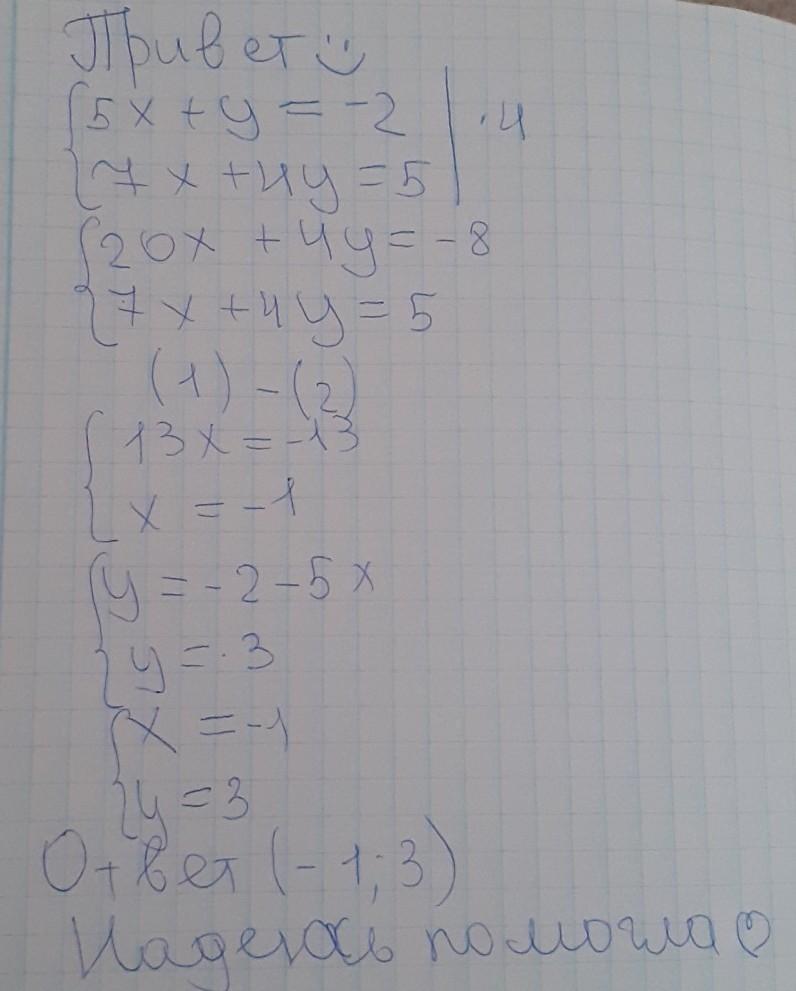 Привет
5x + y = -2 | · 4
7x + 4y = 5
20x + 4y = -8
7x + 4y = 5
(1) - (2)
13x = -13
x = -1
y = -2 - 5x
y = 3
x = -1
y = 3
Ответ (-1; 3)
Надеюсь помогла ♡